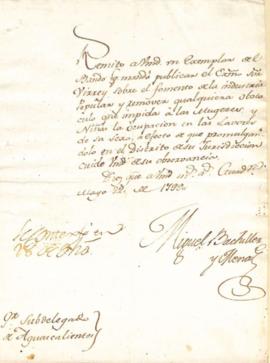 Remito a Vmd un Exemplar del
Bando q.e mandó publicar el Exmo Sor
Virrey sobre el fomento de la industria
popular y remover qualquiera obsta-
culo que impida a las Mugeres, y
Niñas la ocupacion en las Lavores
de su Sexo, a efecto de que promulgan-
dolo en el distrito de su Jurisdiccion
cuide Vmd de su observancia.
Dios gue a Vmd m.s a.s
Mayo de 1799.
Se contextó en
28 de Dho.
Miguel Bachiller
y Mena
Sor Subdelegado
de Aguascalientes